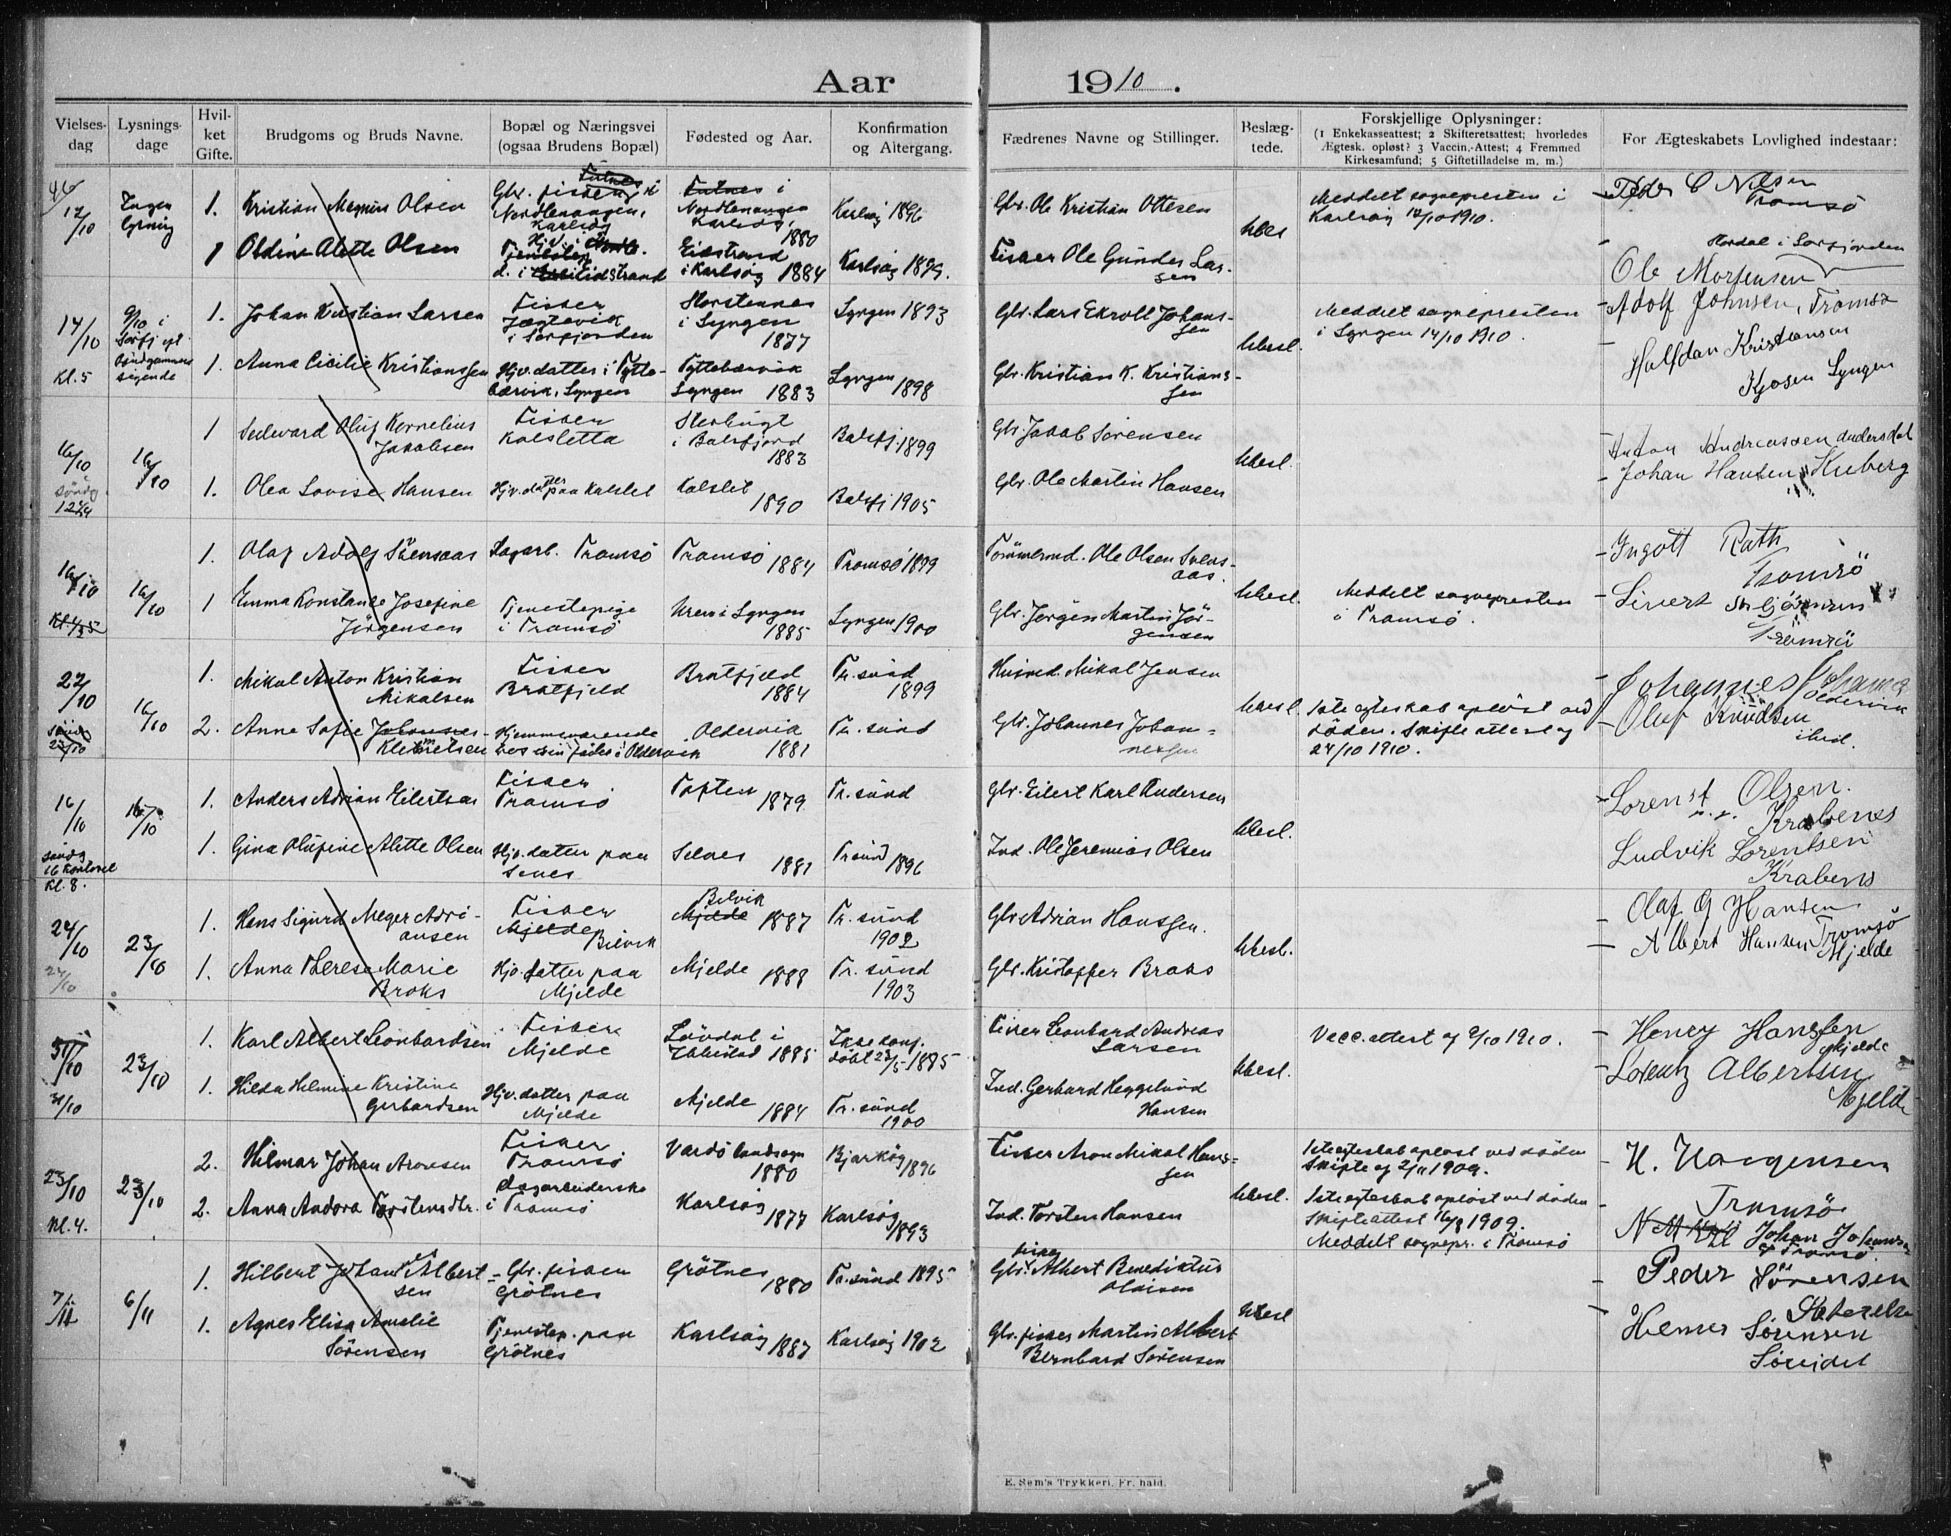 Aar 1910.
Vielsesdag
Lysningsdage
Hvilket Gifte.
Brudgoms og Bruds Navne.
Bopæl og Næringsvei (ogsaa Brudens Bopæl)
Fødested og Aar.
Konfirmation og Altergang.
Fædrenes Navne og Stillinger.
Beslægtede.
Forskjellige Oplysninger:
(1 Enkekasseattest; 2 Skifteretsattest; hvorledes
Ægtesk. opløst? 3 Vaccin.-Attest; 4 Fremmed
Kirkesamfund; 5 Giftetilladelse m. m.)
For Ægteskabets Lovlighed indestaar:
12/10
Ingen
lysning
1. Kristian Magnus Olsen
Gbr. fisker i
Nordlenangen,
Karlsøy
Nordlenangen
Karlsøy,
1880
Karlsøy 1896
Gbr. Ole Kristian Ottesen
Ubesl
Meddelt sognepresten i
Karlsøy 12/10 1910.
Peder C Nilsen
Tromsö
1 Oldine Alette Olsen
strand
i Karlsöy 1884
Karlsøy 1899.
Fisker Ole Gunder Lar-
sen
Ole Mortensen
14/10
Kl. 5
9/10 i
Sörfj.
sigende
1. Johan Kristian Larsen
Fisker
Jægtevik
i Sörfjorden
Storstennes
i Lyngen
1877
Lyngen 1893
Gbr. Lars Ekroll Johans-
sen
Ubesl.
Meddelt sognepresten
i Lyngen 14/10 1910.
Adolf Johnsen, Tromsö
1. Anna Cicilie Kristianssen
Hjv. datter i Tytte-
bærvik, Lyngen
Tyttebærvik
Lyngen 1883
Lyngen
1898
Gbr. Kristian K. Kristians-
sen
Halfdan Kristiansen
Kjosen Lyngen
16/10
16/10
1 Sedevard Oluf Kornelius
Jakobsen
Fisker
Kalsletta
i Balsfjord
1883
Balsfj. 1899
Gbr. Jakob Sörensen
Ubesl.
Anton Andreassen Andersdal
1. Olea Lovise Hansen
Hjv. datter paa Kalslet
Kalslet
1890
Balsfj 1905
Gbr. Ole Martin Hansen
Johan Hansen Kuberg
16/10
16/10
1. Olaf Adolf Svensaas
Dagarb. Tromsö
Tromsö 1884
Tromsö 1899
Tömmermd. Ole Olsen Svens-
aas.
Ubesl.
Meddelt sognepresten
i Tromsö.
Ingolf Rath
Tromsö
1 Emma Konstanse Josefine
Jörgensen
Tjenestepige
i Tromsö
i Lyngen
1885
Lyngen 1900
Gbr. Jörgen Martin Jör-
gensen
Sivert
Tromsö
27/10
16/10
1. Mikal Anton Kristian
Mikalsen
Fisker
Bratfjeld
Bratfjeld
1884
Tr. sund
1899
Husmd. Mikal Jensen
Ubesl.
1ste egteskab oplöst ved
döden. Skifteattest af
24/10 1910.
Oldervik
2. Anna Sofie Johannes-
Klemetsen
Hjemmeværende
hos sin fader i Oldervik
Oldervik
1881
Tr. sund
Gbr. Johannes Johan-
nessen
Oluf Knudsen
ibid.
16/10
16/10
Kl. 8.
1. Anders Adrian Eilertsen
Fisker
Tromsö
Toften 1879
Tr. sund
Gbr. Eilert Karl Andersen
Ubesl.
Lorents Olsen.
Krabenes
1. Gina Olufine Alette Olsen
Hjv. datter paa
Selnes
Selnes
1881
Tr sund
1896
Ind. Ole Jeremias Olsen
Ludvik Lorentsen
Krabenes
24/10
23/10
1. Hans Sigurd Meyer Adri-
ansen
Fisker
Mjelde
Bilvik
Bilvik
Mjelde 1887
Tr. sund
1902
Gbr Adrian Hanssen.
Ubesl.
Olaf G Hansen
Tromsö
1. Anna Therese Marie
Broks
Hjv. datter paa
Mjelde
Mjelde 1888
Tr. sund
1903
Gbr. Kristoffer Broks
Albert Hansen
Mjelde
31/10
31/10
23/10
1. Karl Albert Leonhardsen
Fisker
Mjelde
Lövdal i
Ibbestad 1885
Ikke konf.
döbt 1885
Fisker Leonhard Andreas
Larsen
Ubesl.
Vacc. attest af 9/10 1910.
Henry Hanssen
Mjelde
1. Hilda Helmine Kristine
Gerhardsen
Hjv. datter paa
Mjelde
Mjelde 1884
Tr. sund
1900
Ind. Gerhard Heggelund
Hansen
Lorentz Albertsen
Mjelde
23/10
Kl. 4.
23/10
2. Hilmar Johan Aronsen
Fisker
Tromsö
Vardö landsogn
1880
Bjarköy 1896
Fisker Aron Mikal Hans-
sen
Ubesl.
1ste egteskab oplöst ved döden
Skifte af 2/11 1909.
H. Haagensen
Tromsö
2. Anna Andora Torstensdtr.
Dagarbeiderske
i Tromsö
Karlsöy
1877
Karlsöy
1893
Ind. Torsten Hansen
1ste egteskab oplöst ved döden
Skifteattest 16/8 1909.
Meddelt sognepr. i Tromsö
Johan Johansen
Tromsö
7/11
6/11
1. Hilbert Johan Albert-
sen
Gbr. fisker
Grötnes
Grötnes
1880
Tr. sund 1895
Gbr. fisker Albert Benediktus
Oldisen
Ubesl
Peder Sörensen
1. Agnes Elisa Amalie
Sörensen
Tjenestep. paa
Grötnes
Karlsöy 1887
Karlsöy 1902
Gbr. fisker Martin Albert
Bernhard Sörensen
Helmer Sörensen
Söreidet
E. Sem's Trykkeri, Fr. hald.